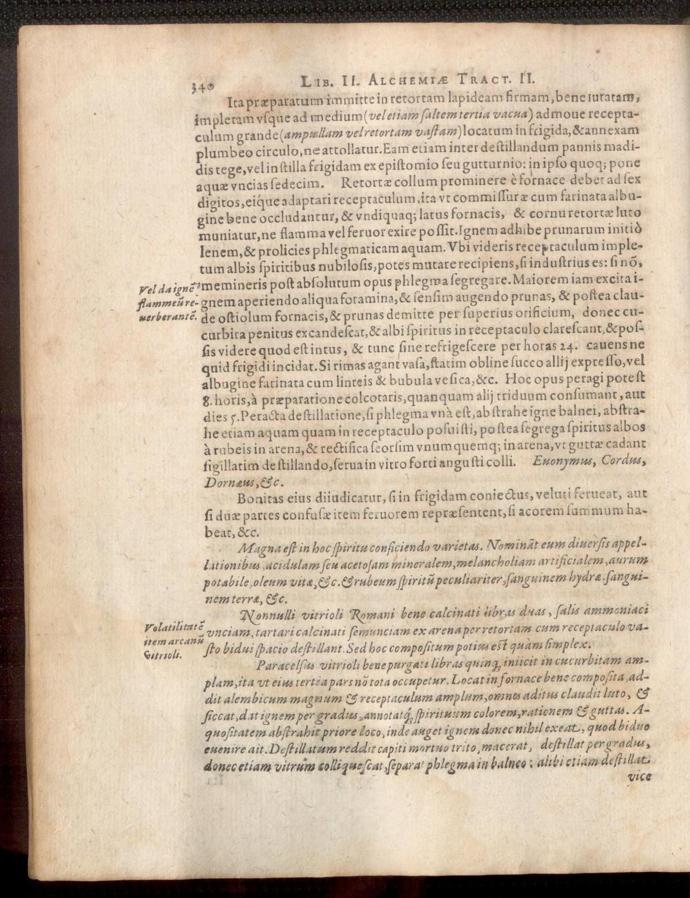 340 LIB. II. ALCHEMIÆ TRACT. II.
Ita præparatum immitte in retortam lapideam firmam, bene lutatam,
impletam vsque ad medium (vel etiam saltem tertia vacua) admoue recepta-
culum grande (ampullam vel retortam vastam) locatum in frigida, & annexam
plumbeo circulo, ne attollatur. Eam etiam inter destillandum pannis madi-
dis tege, vel instilla frigidam ex epistomio seu gutturnio: in ipso quoq; pone
aquæ vncias sedecim. Retortæ collum prominere è fornace debet ad sex
digitos, eique adaptari receptaculum, ita vt commissuræ cum farinata albu-
gine bene occludantur, & vndiquaq; latus fornacis, & cornu retortæ luto
muniatur, ne flamma vel feruor exire possit. Ignem adhibe prunarum initiò
lenem, & prolicies phlegmaticam aquam. Vbi videris receptaculum imple-
tum albis spiritibus nubilosis, potes mutare recipiens, si industrius es: si nõ,
memineris post absolutum opus phlegma segregare. Maiorem iam excita i-
Vel da ignẽ
flammeũ re-
uerberantẽ.
gnem aperiendo aliqua foramina, & sensim augendo prunas, & postea clau-
de ostiolum fornacis, & prunas demitte per superius orificium, donec cu-
curbita penitus excandescat, & albi spiritus in receptaculo clarescant, & pos-
sis videre quod est intus, & tunc sine refrigescere per horas 24. cauens ne
quid frigidi incidat. Si rimas agant vasa, statim obline succo allij expresso, vel
albugine farinata cum linteis & bubula vesica, &c. Hoc opus peragi potest
8. horis, à præparatione colcotaris, quanquam alij triduum consumant, aut
dies 5. Peracta destillatione, si phlegma vnà est, abstrahe igne balnei, abstra-
he etiam aquam quam in receptaculo posuisti, postea segrega spiritus albos
à rubeis in arena, & rectifica seorsim vnumquemq; in arena, vt guttæ cadant
sigillatim destillando, serua in vitro forti angusti colli. Euonymus, Cordus,
Dornæus, &c.
Bonitas eius diiudicatur, si in frigidam coniectus, veluti ferueat, aut
si duæ partes confusæ item feruorem repræsentent, si acorem summum ha-
beat, &c.
Magna est in hoc spiritu conficiendo varietas. Nominãt eum diuersis appel-
lationibus, acidulam seu acetosam mineralem, melancholiam artificialem, aurum
potabile, oleum vitæ, &c. & rubeum spiritũ peculiariter, sanguinem hydræ, sangui-
nem terræ, &c.
Nonnulli vitrioli Romani bene calcinati libras duas, salis ammoniaci
Volatilitatẽ
item arcanũ
vitrioli.
vnciam, tartari calcinati semunciam ex arena per retortam cum receptaculo va-
sto bidui spacio destillant. Sed hoc compositum potius est quàm simplex.
Paracelsus vitrioli bene purgati libras quinq, iniicit in cucurbitam am-
plam, ita vt eius tertia pars nõ tota occupetur. Locat in fornace bene composita, ad-
dit alembicum magnum & receptaculum amplum, omnes aditus claudit luto, &
siccat, dat ignem per gradus, annotatq, spirituum colorem, rationem & guttas. A-
quositatem abstrahit priore loco, inde auget ignem donec nihil exeat, quod biduo
euenire ait. Destillatum reddit capiti mortuo trito, macerat, destillat per gradus,
donec etiam vitrum colliquescat, separat phlegma in balneo: alibi etiam destillat
vice